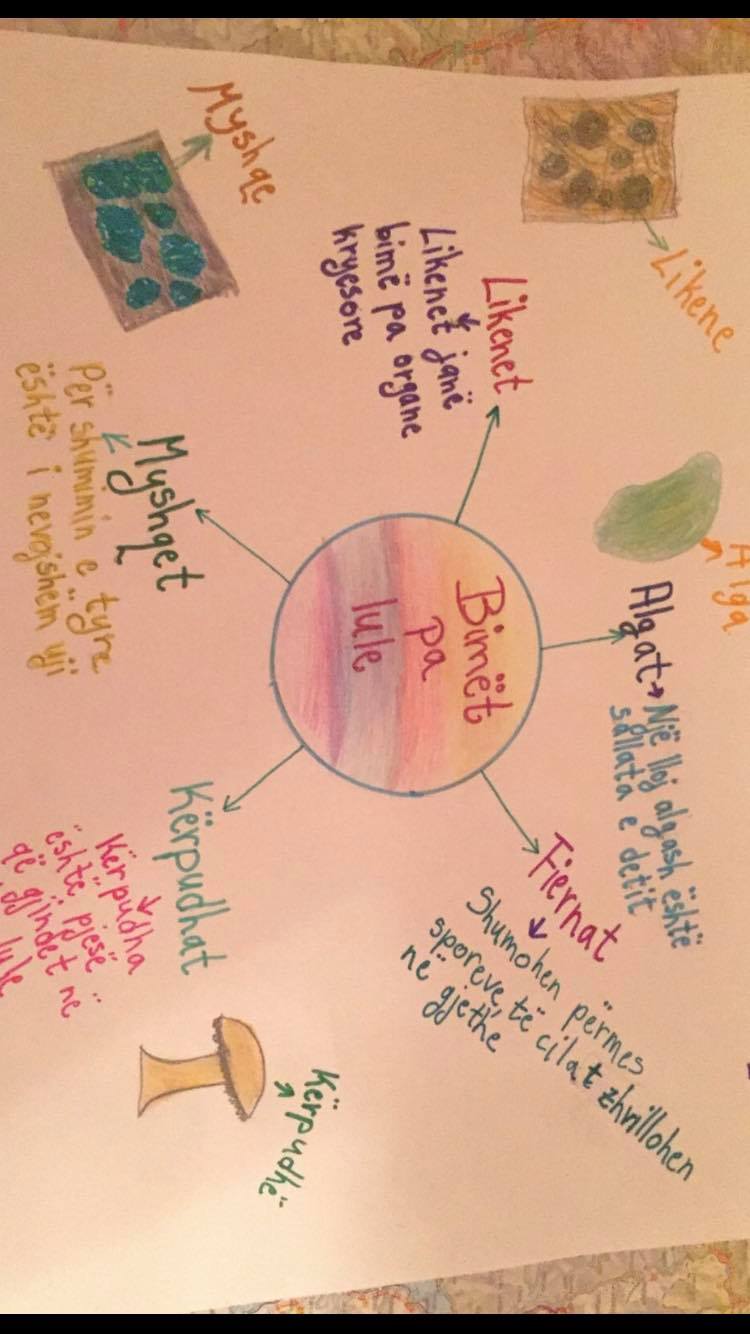 Bimët
pa
lule
Likene
Likenet
Likenet janë
bimë pa organe
kryesore
Alga
Algat → Një lloj algash është
sallata e detit
Fiernat
Shumohen përmes
sporeve, të cilat zhvillohen
në gjethe
Myshqe
Myshqet
Për shumimin e tyre
është i nevojshëm uji
Kërpudhat
Kërpudha
është pjesë
që gjindet në
lule
Kërpudhë